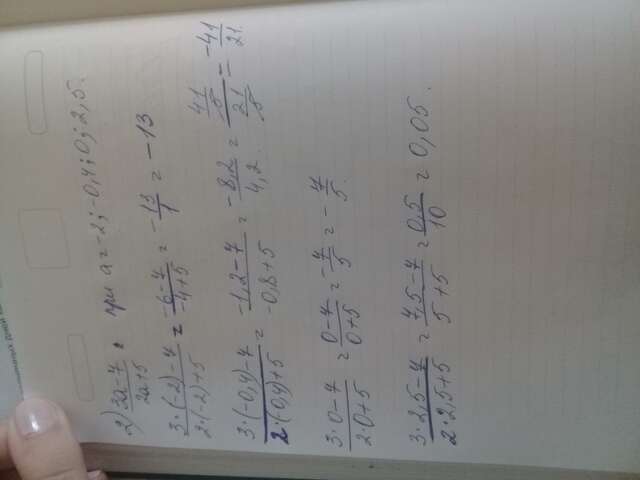 2) (3a-7)/(2a+5), при a=-2; -0,4; 0; 2,5.
(3·(-2)-7)/(2·(-2)+5) = (-6-7)/(-4+5) = -13/1 = -13
(3·(-0,4)-7)/(2·(0,4)+5) = (-1,2-7)/(-0,8+5) = -8,2/4,2 = (41/5)/(21/5) = -41/21
(3·0-7)/(2·0+5) = (0-7)/(0+5) = -7/5 = -7/5.
(3·2,5-7)/(2·2,5+5) = (7,5-7)/(5+5) = 0,5/10 = 0,05.